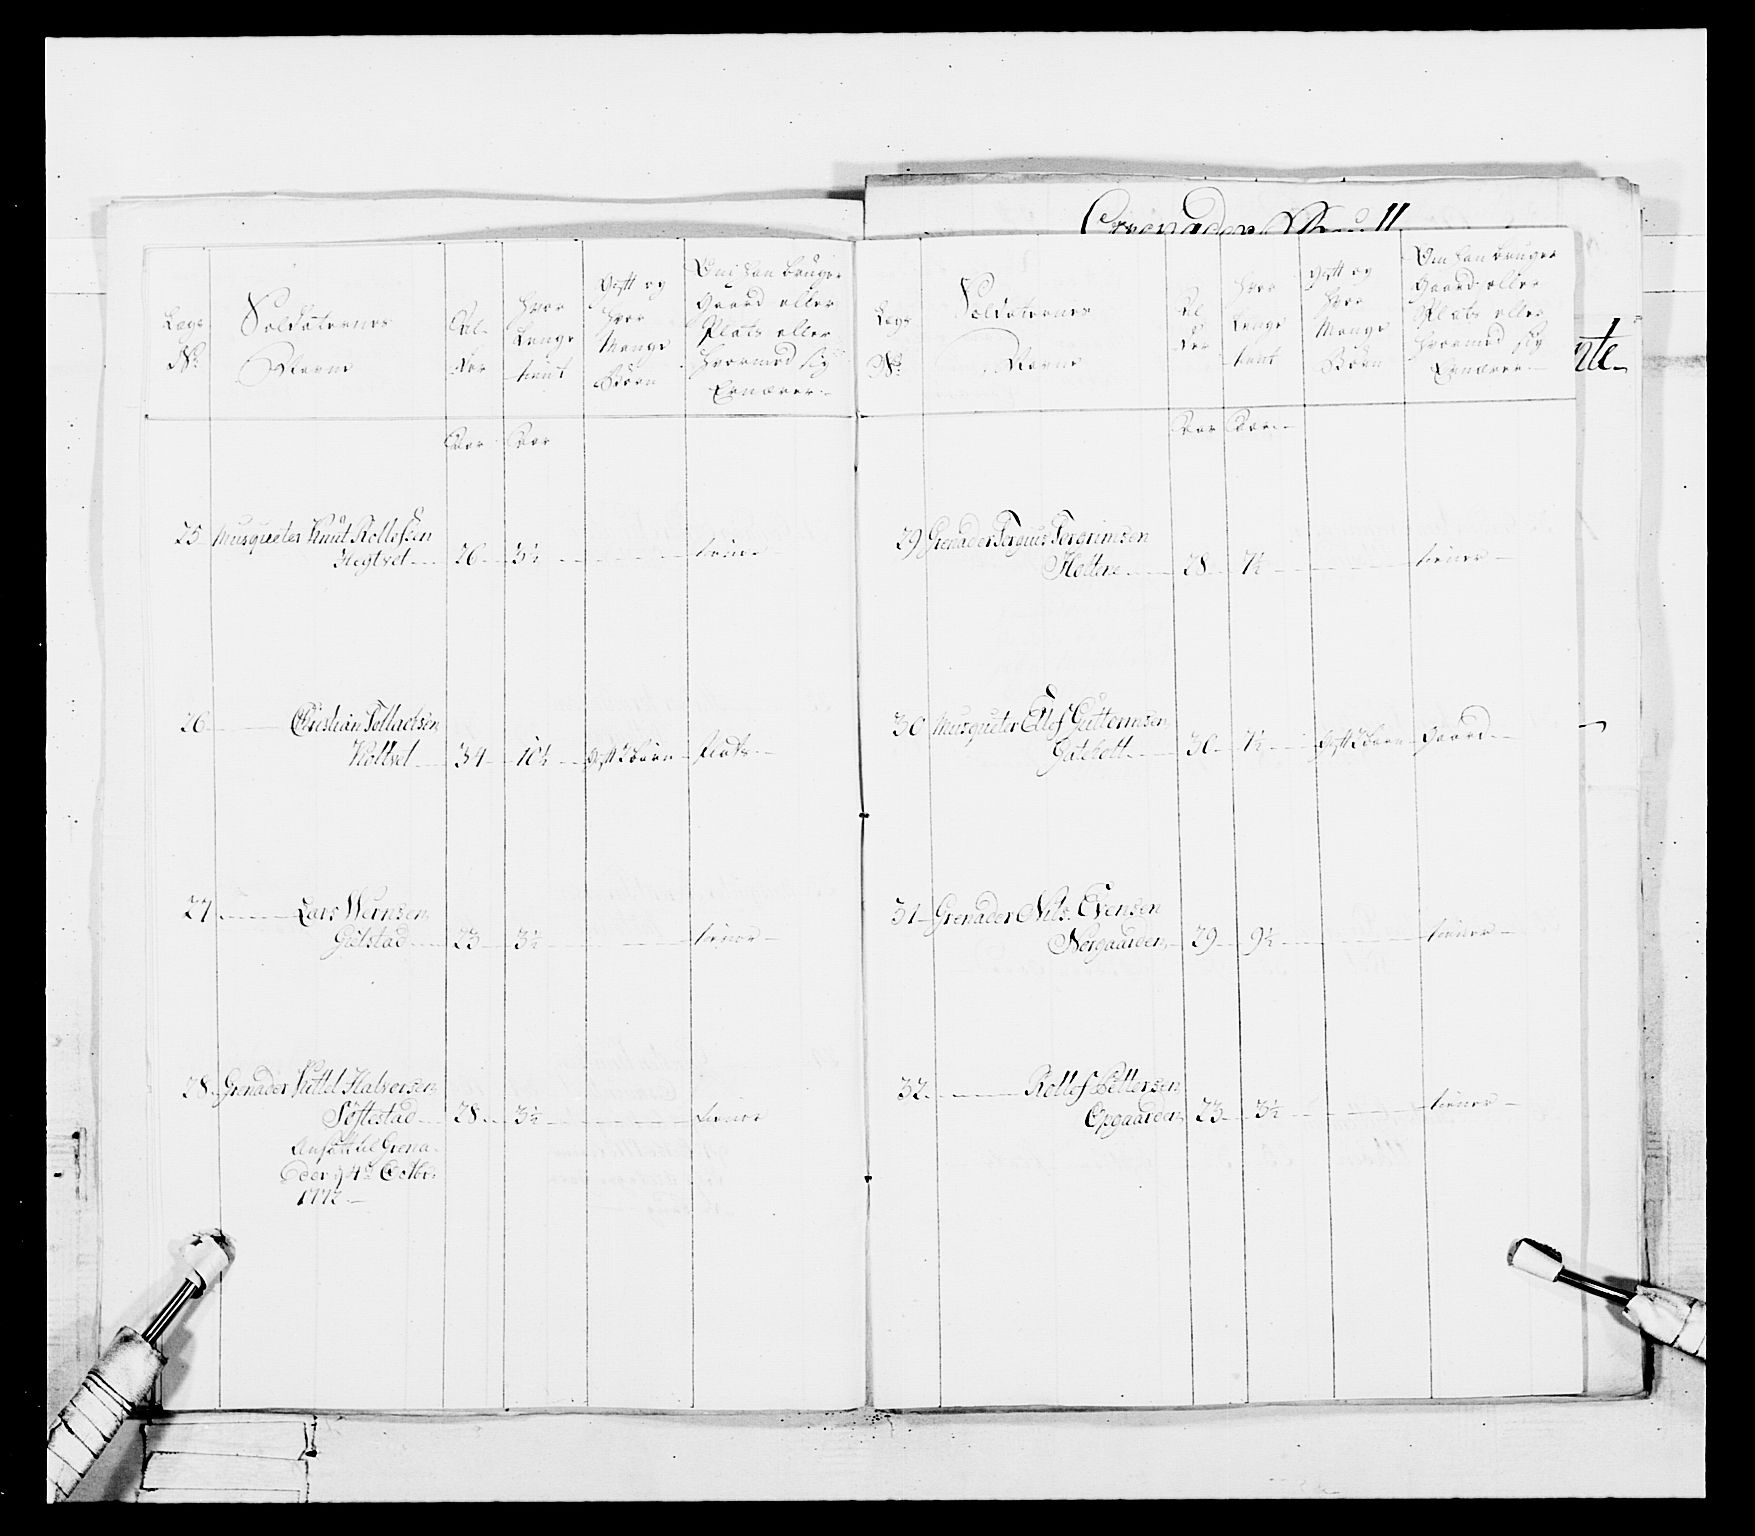 Grenader
Lægs
No.
Soldaternes
Navne
Al-
der
Hvor
Længe
tient
Gift og
Hvor
Mange
Børn
Om han bruger
Gaard eller
Plats eller
Hvormed sig
Ernærer
Aar Aar
25 Musqueter Knut Rollefsen
Hegtvet 26 3½ tiener
26 Christian Tellachsen
Holtvet 34 10½ Gift 2 børn Plads
27 Lars Wernsen
Gulstad 23 3½ tiener
28 Grenader Kittel Halvorsen
Søftestad 28 3½ tiener
Ansat til Grena-
deer 4 Octbr
1772
Lægs
No.
Soldaternes
Navne
Al-
der
Hvor
Længe
tient
Gift og
Hvor
Mange
Børn
Om han bruger
Gaard eller
Plats eller
Hvormed sig
Ernærer
Aar Aar
29 Grenader Torgrimsen
Holtene 28 7½ tiener
30 Musqueter Ellef Guttormsen
30 7½ Gift 2 børn Gaard
31 Grenader Nils Evensen
Nergaarden 29 9½ tiener
32 Rollof Pettersen
Opgaarden 23 3½ tiener